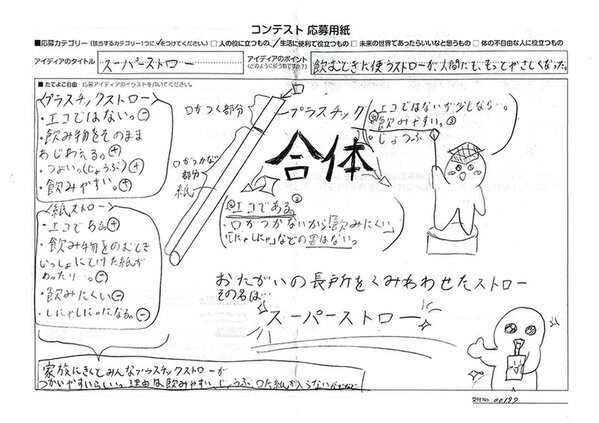 コンテスト 応募用紙
■応募カテゴリー(該当するカテゴリー1つに✓をつけてください。) □ 人の役に立つもの ✓ 生活に便利で役立つもの □ 未来の世界であったらいいなと思うもの □ 体の不自由な人に役立つもの
アイディアのタイトル
スーパーストロー
アイディアのポイント
飲むときに使うストローが、人間にも、もっとやさしくなった。
■たてよこ自由 応募アイディアのイラストを描いてください。
〈プラスチックストロー〉
・エコではない。⊖
・飲み物をそのまま
あじわえる。⊕
・つよい。(じょうぶ)⊕
・飲みやすい。⊕
〈紙ストロー〉
・エコである⊕
・飲み物をのむとき
いっしょにとけた紙が
・飲みにくい⊖
・しにゃしにゃになる。⊖
口がつく部分
プラスチック
口がつかない
部分
紙
合体
エコではないが少しなら…。
飲みやすい。
・じょうぶ
エコである。
・口がつかないから「飲みにくい」
「しにゃしにゃ」などの
おたがいの長所をくみあわせたストロー
その名は…
スーパーストロー
家族にきくとみんなプラスチックストローが
つかいやすいらしい。理由は、飲みやすい、じょうぶ、
受付No. 00197